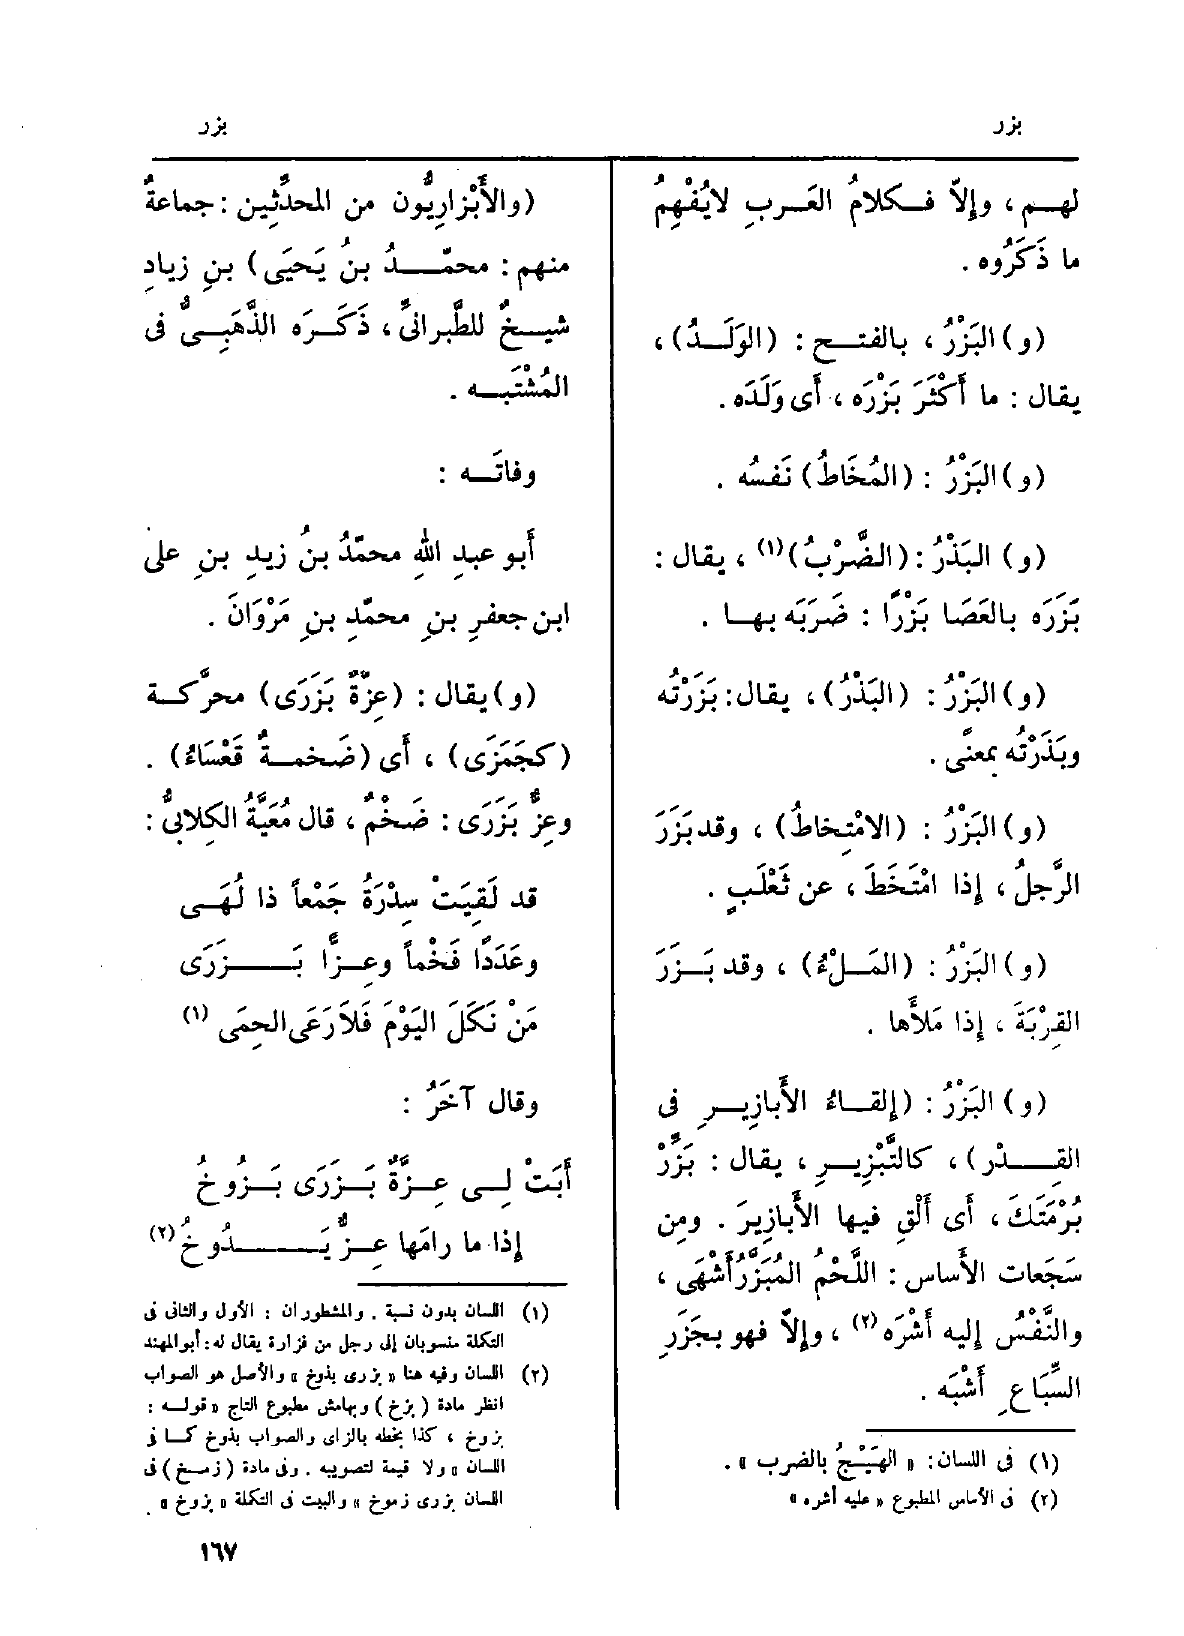 بزر
بزر
لهـم ، وإلاّ فـكلامُ العَـربِ لايُفْهِمُ
ما ذَكَرُوه .
(و) البَزْرُ ، بالفتـح : (الوَلَـدُ) ،
يقال : ما أَكْثَرَ بَزْرَه ، أَى وَلَدَه .
(و) البَزْرُ : (المُخَاطُ) نَفسُه .
(و) البَذْرُ : (الضَّرْبُ)(١) ، يقال :
بَزَرَه بالعَصَا بَزْرًا : ضَرَبَه بهـا .
(و) البَزْرُ : (البَذْرُ) ، يقال : بَزَرْتُه
وبَذَرْتُه بمعنًى .
(و) البَزْرُ : (الامْتِخاطُ) ، وقد بَزَرَ
الرَّجلُ ، إذا امْتَخَطَ ، عن ثَعْلَبٍ .
(و) البَزْرُ : (المَـلْءُ) ، وقد بَـزَرَ
القِرْبَةَ ، إذا مَلأَها .
(و) البَزْرُ : (إلقـاءُ الأَبازِيـرِ فى
القِـدْر) ، كالتَّبْزِيـرِ ، يقال : بَزِّرْ
بُرْمَتَكَ ، أَى أَلْقِ فيها الأَبازِيرَ . ومن
سَجَعات الأَساس : اللَّحْمُ المُبَزَّرُ أَشْهَى ،
والنَّفْسُ إليه أَشْرَه(٢) ، وإلاّ فهو بجَزَرِ
السِّبَاعِ أَشْبَه .
(١) فى اللسان : « الهَيْجُ بالضرب » .
(٢) فى الأساس المطبوع « عليه أشره »
(والأَبْزارِيُّون من المحدِّثِين : جماعةٌ
منهم : محمّـدُ بنُ يَحيَى) بنِ زيادٍ
شيـخٌ للطَّبرانىِّ ، ذَكَـرَه الذَّهَبِـىُّ فى
المُشْتَبَـه .
وفاتَـه :
أَبو عبدِ اللهِ محمّدُ بنُ زيدِ بنِ على
ابن جعفرِ بنِ محمّدِ بنِ مَرْوَانَ .
(و) يقال : (عِزَّةٌ بَزَرَى) محرَّكـة
(كجَمَزَى) ، أَى (ضَخمـةٌ قَعْسَاءُ) .
وعِزٌّ بَزَرَى : ضَخْمٌ ، قال مُعَيَّةُ الكِلابىُّ :
قد لَقِيَتْ سِدْرَةُ جَمْعاً ذا لُهَـى
وعَدَدًا فَخْماً وعِـزًّا بَـزَرَى
مَنْ نَكَلَ اليَوْمَ فَلاَ رَعَى الحِمَى (١)
وقال آخَرُ :
أَبَتْ لِـى عِـزَّةٌ بَـزَرَى بَـزُوخُ
إذا ما رامَها عِـزٌّ يَـدُوخُ(٢)
(١) اللسان بدون نسبة . والمشطوران : الأول والثانى فى
التكلة منسوبان إلى رجل من فزارة يقال له : أبو المهند
(٢) اللسان وفيه هنا « بزرى بذوخ » والأصل هو الصواب
انظر مادة (بزخ) وبهامش مطبوع التاج « قولـه :
بزوخ ، كذا بخطه بالزاى والصواب بذوخ كـا فى
اللسان » ولا قيمة لتصويبه . وفى مادة (زمـخ) فى
اللسان بزرى زموخ » والبيت فى التكلة « بزوخ » .
١٦٧